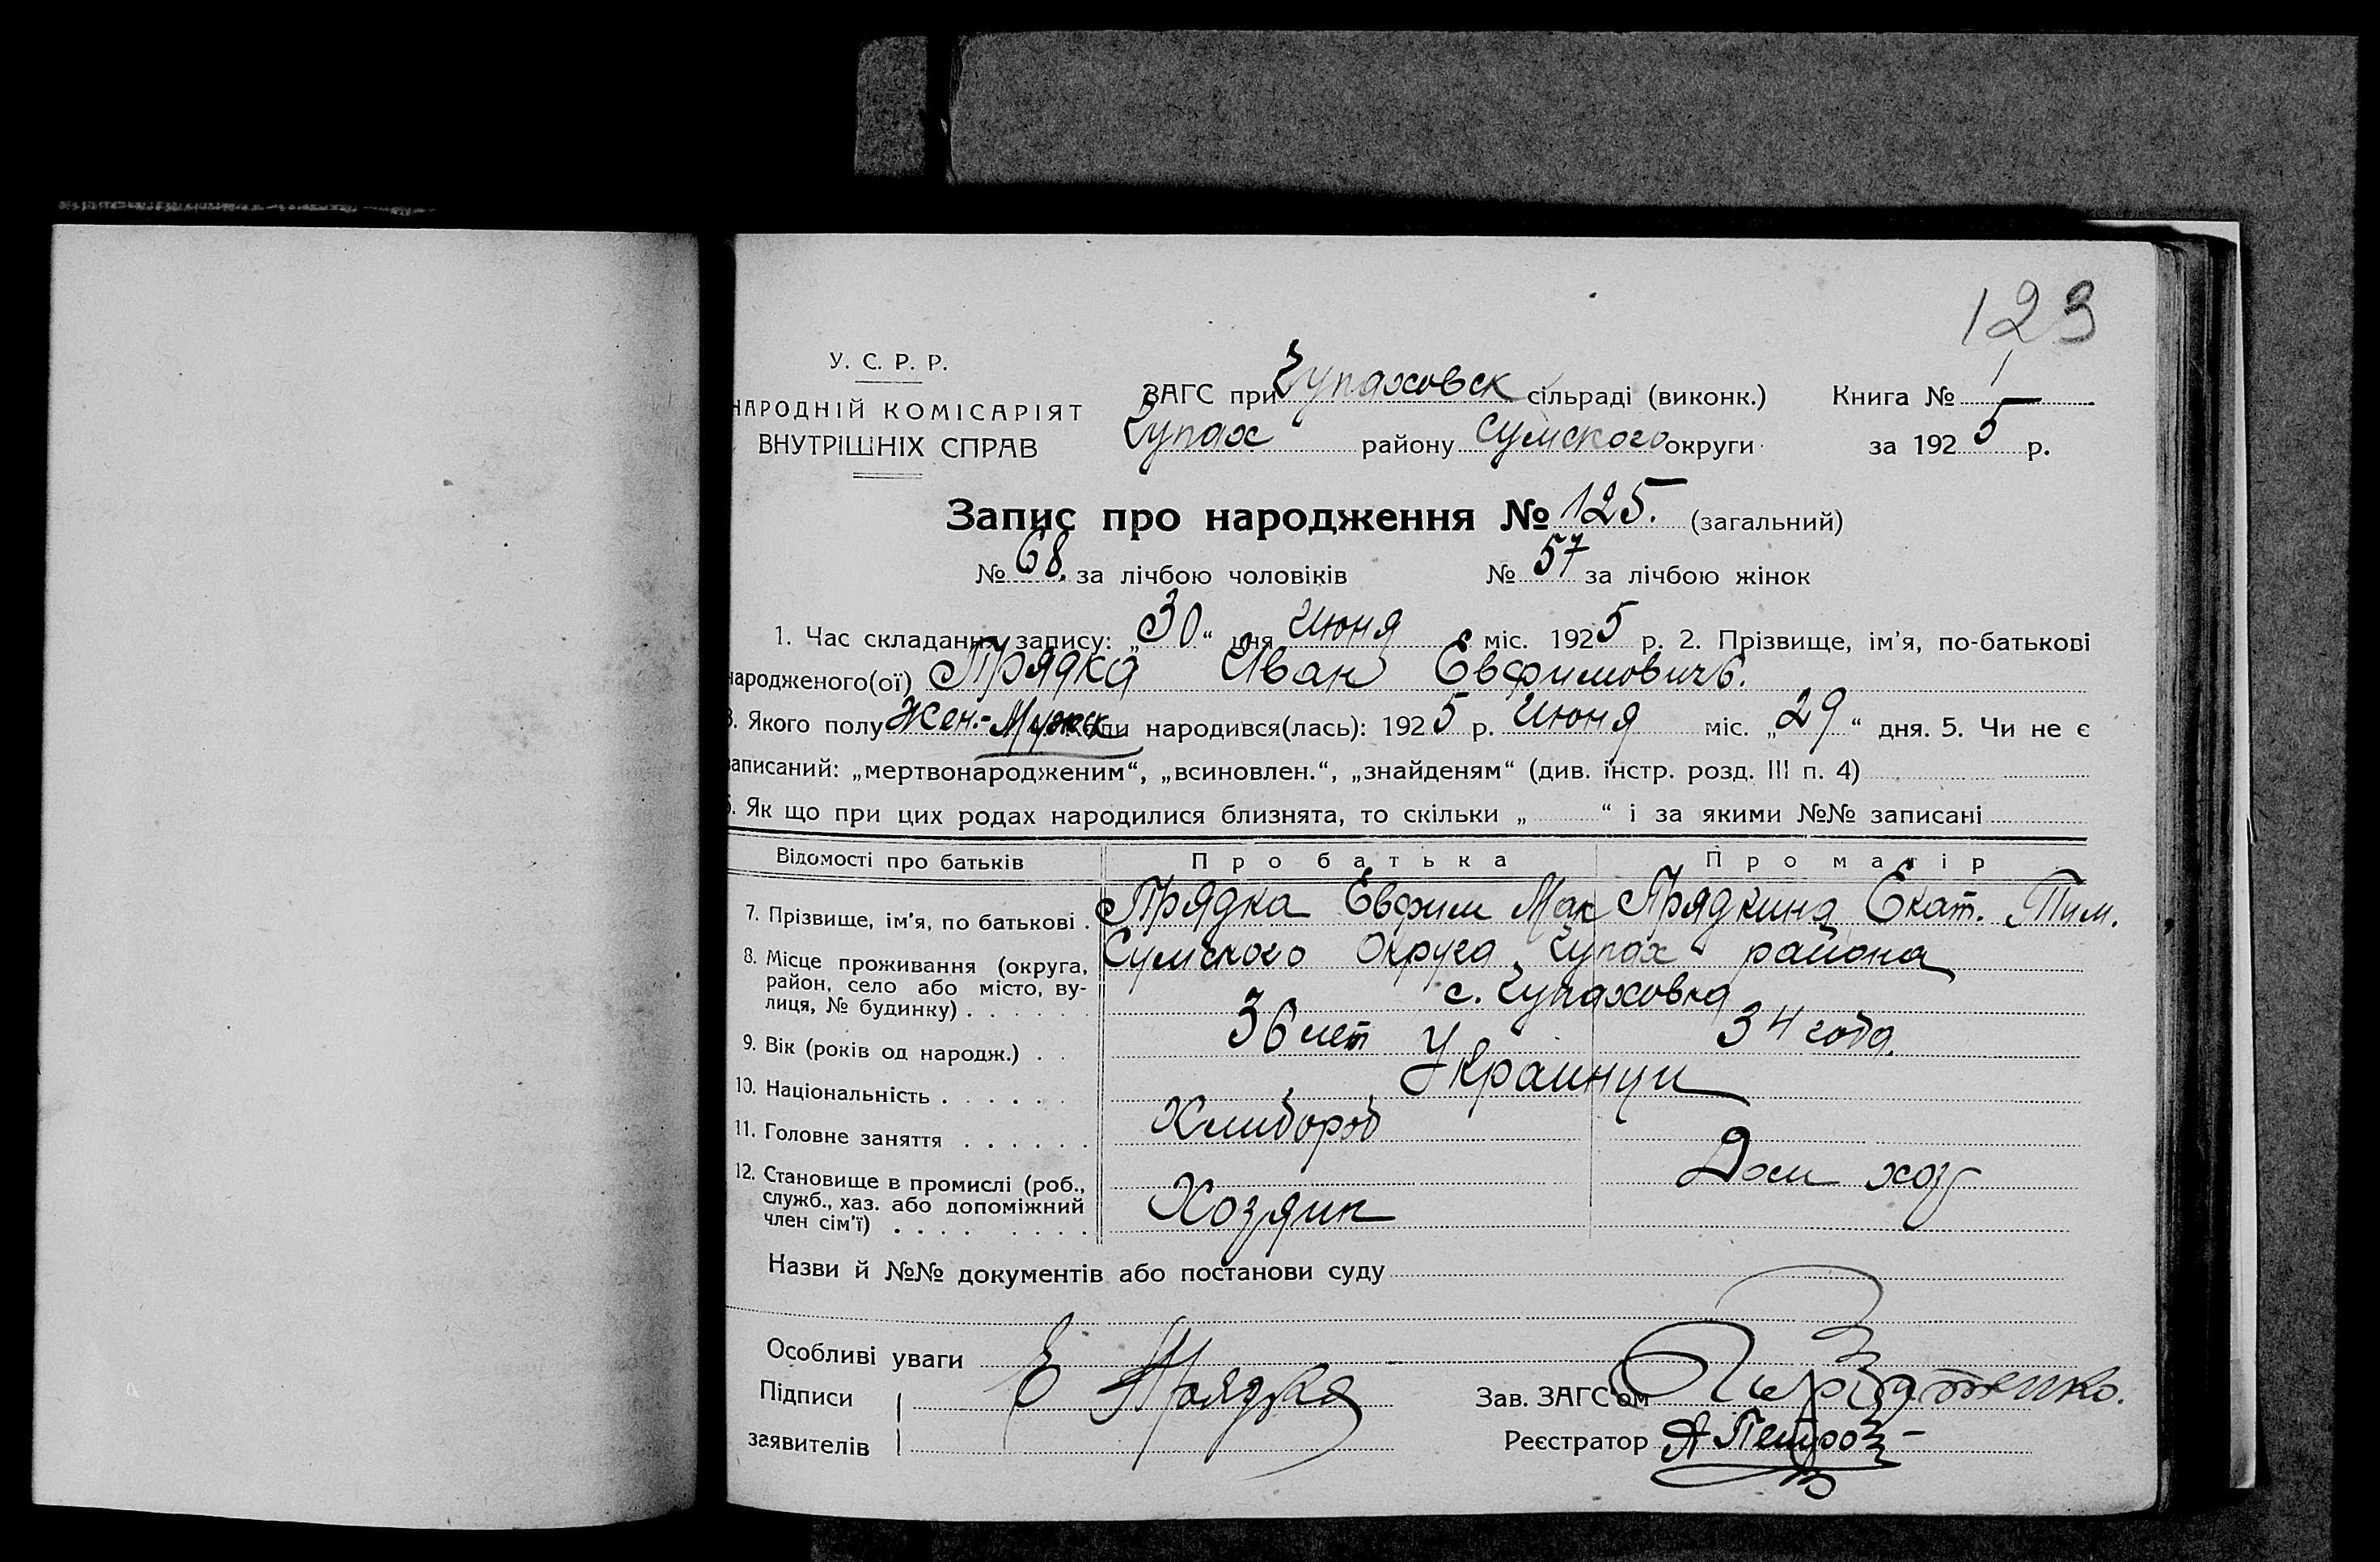 123
У. С. Р. Р.
НАРОДНІЙ КОМІСАРІЯТ
ВНУТРІШНІХ СПРАВ
ЗАГС при Чупаховск сільраді (виконк.) Книга № 1
Чупах району Сумского округи за 1925 р.
Запис про народження № 125. (загальний)
№ 68. за лічбою чоловіків № 57 за лічбою жінок
1. Час складання запису: „30“ дня Июня міс. 1925 р. 2. Прізвище, ім'я, по-батькові
народженого(ої) Прядка Иван Евфимовичъ.
3. Якого полу Жен.- Мужск Коли народився(лась): 1925 р. Июня міс. „29“ дня. 5. Чи не є
записаний: „мертвонародженим“, „всиновлен.“, „знайденям“ (див. інстр. розд. III п. 4)
6. Як що при цих родах народилися близнята, то скільки „ “ і за якими №№ записані
Відомості про батьків Про батька Про матір
7. Прізвище, ім'я, по батькові . Прядка Евфим Мак Прядкина Екат. Тим.
8. Місце проживання (округа, район, село або місто, вулиця, № будинку) . . . . . . Сумского Округа Чупах района
с. Чупаховка
9. Вік (років од народж.) . . 36 лет 34 года.
10. Національність . . . . . . Украинци
11. Головне заняття . . . . . . Хлибороб
12. Становище в промислі (роб., служб., хаз. або допоміжний член сім'ї) . . . . . . . . Хозяин Дом хоз
Назви й №№ документів або постанови суду
Особливі уваги
Підписи заявителів Е Прядка
Зав. ЗАГС'ом
Реєстратор А Петров